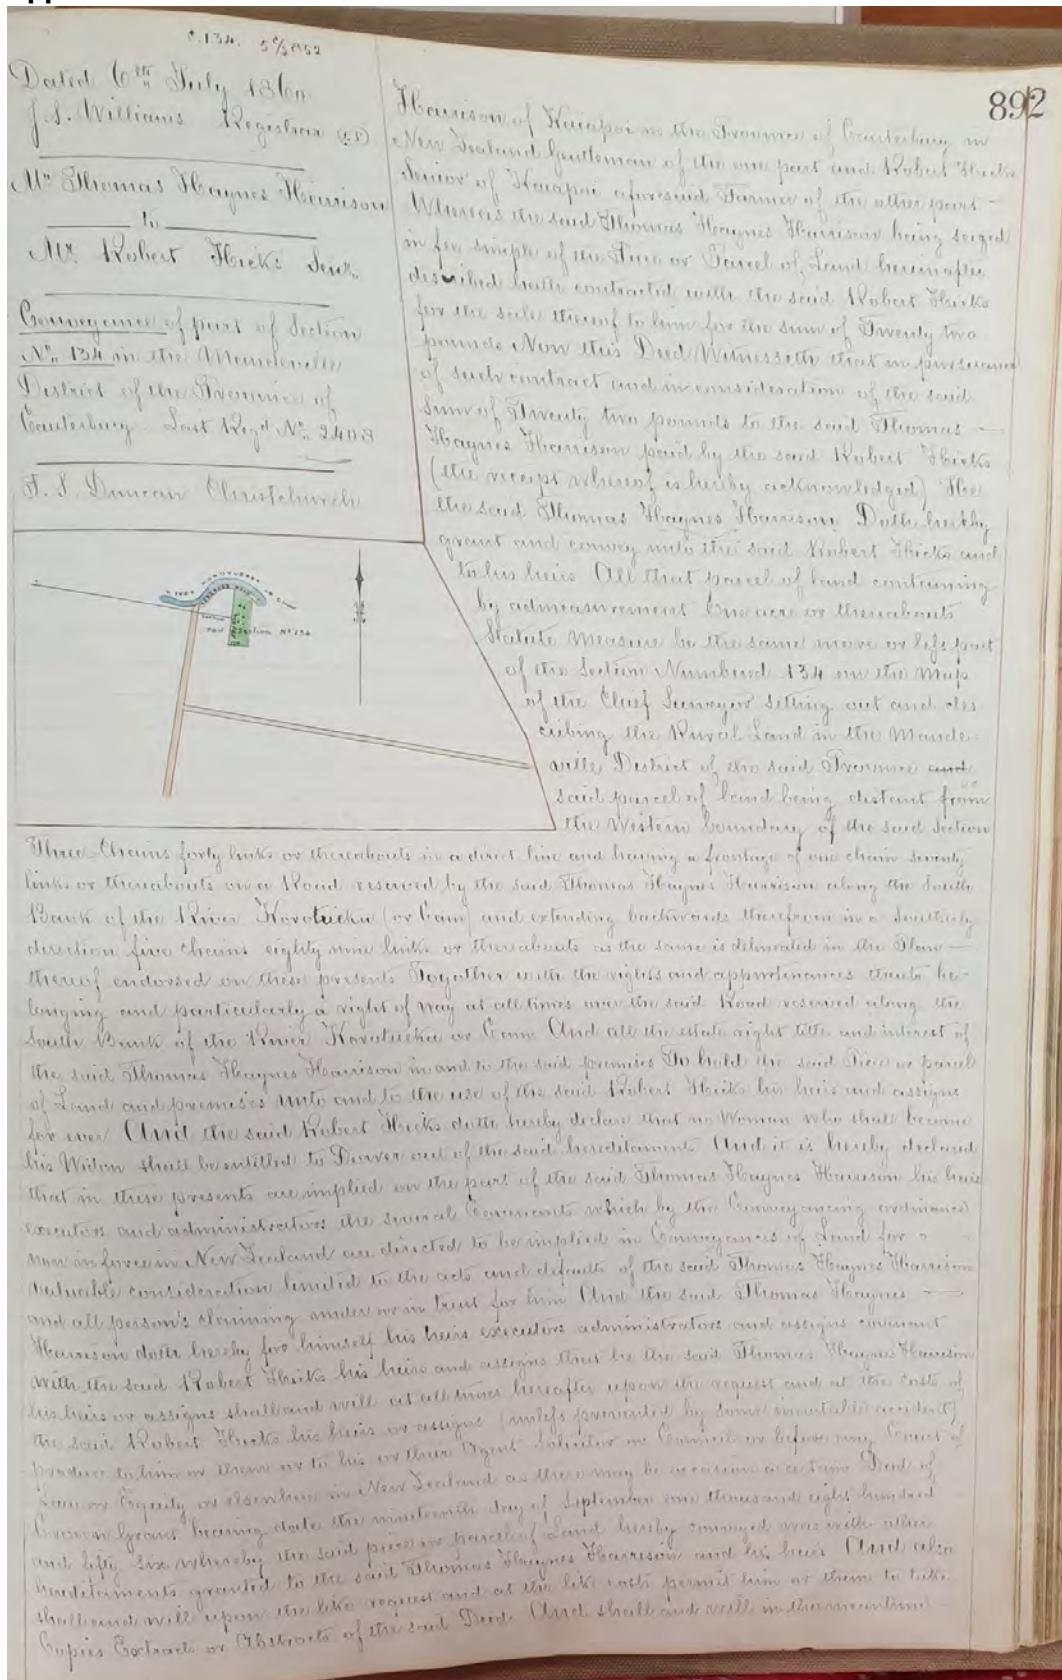 c.134. 5c/s 952
Dated 6th July 1860
J. S. Williams Registrar (LS)
Mr Thomas Haynes Harrison
to
Mr. Robert Hicks Senr.
Conveyance of part of Section
No. 134 in the Mandeville
District of the Province of
Canterbury - Last Regd No. 2403
T. S. Duncan Christchurch
892
Harrison of Kaiapoi in the Province of Canterbury in
New Zealand Gentleman of the one part and Robert Hicks
Senior of Kaiapoi aforesaid Farmer of the other part -
Whereas the said Thomas Haynes Harrison being seized
in fee simple of the Piece or Parcel of Land hereinafter
described hath contracted with the said Robert Hicks
for the sale thereof to him for the sum of Twenty two
pounds Now this Deed Witnesseth that in pursuance
of such contract and in consideration of the said
Sum of Twenty two pounds to the said Thomas -
Haynes Harrison paid by the said Robert Hicks
(the receipt whereof is hereby acknowledged) He
the said Thomas Haynes Harrison Doth hereby
grant and convey unto the said Robert Hicks and
to his heirs All that parcel of land containing
by admeasurement One acre or thereabouts
Statute Measure be the same more or less part
of the Section Numbered 134 on the Map
of the Chief Surveyor setting out and des
cribing the Rural Land in the Mande-
ville District of the said Province and
said parcel of land being distant from
the Western boundary of the said Section
River
Part Section No 134
Three Chains forty links or thereabouts in a direct line and having a frontage of one chain seventy
links or thereabouts on a Road reserved by the said Thomas Haynes Harrison along the South
Bank of the River Korotueka (or Cam) and extending backwards therefrom in a Southerly
direction five chains eighty nine links or thereabouts as the same is delineated in the Plan -
thereof endorsed on these presents Together with the rights and appurtenances thereto be-
longing and particularly a right of way at all times over the said Road reserved along the
South Bank of the River Korotueka or Cam And all the estate right title and interest of
the said Thomas Haynes Harrison in and to the said premises To hold the said Piece or parcel
of Land and premises unto and to the use of the said Robert Hicks his heirs and assigns
for ever And the said Robert Hicks doth hereby declare that no Woman who shall become
his Widow shall be entitled to Dower out of the said hereditaments And it is hereby declared
that in these presents are implied on the part of the said Thomas Haynes Harrison his heirs
executors and administrators the several Covenants which by the Conveyancing ordinance
now in force in New Zealand are directed to be implied in Conveyances of Land for a
valuable consideration limited to the acts and defaults of the said Thomas Haynes Harrison
and all person's claiming under or in trust for him And the said Thomas Haynes -
Harrison doth hereby for himself his heirs executors administrators and assigns covenant
with the said Robert Hicks his heirs and assigns that he the said Thomas Haynes Harrison
his heirs or assigns shall and will at all times hereafter upon the request and at the costs of
the said Robert Hicks his heirs or assigns (unless prevented by some inevitable accident)
produce to him or them or to his or their Agent Solicitor or Council or before any Court of
Law or Equity or elsewhere in New Zealand as there may be occasion a certain Deed of
Crown Grant bearing date the nineteenth day of September one thousand eight hundred
and fifty six whereby the said piece or parcel of Land hereby conveyed was with other
hereditaments granted to the said Thomas Haynes Harrison and his heirs And also
shall and will upon the like request and at the like costs permit him or them to take
Copies Extracts or Abstracts of the said Deed And shall and will in the meantime